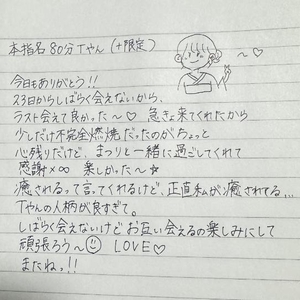 本指名 80分 Tやん (+限定)
～♡
今日もありがとう!!
23日からしばらく会えないから、
ラスト会えて良かった～♡ 急きょ来てくれたから
少しだけ不完全燃焼だったのがちょっと
心残りだけど、まつりと一緒に過ごしてくれて
感謝×∞ 楽しかった～☆
癒されるって言ってくれるけど、正直私が癒されてる...
Tやんの人柄が良すぎて。
しばらく会えないけどお互い会えるの楽しみにして
頑張ろう～☺ LOVE♡
またねっ!!